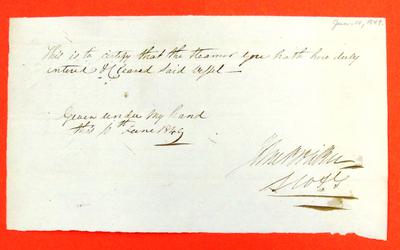 June 10, 1849.
This is to certify that the Steamer hath here duly
entered & Cleared Said Vessel —
Given under My hand
this June 1849